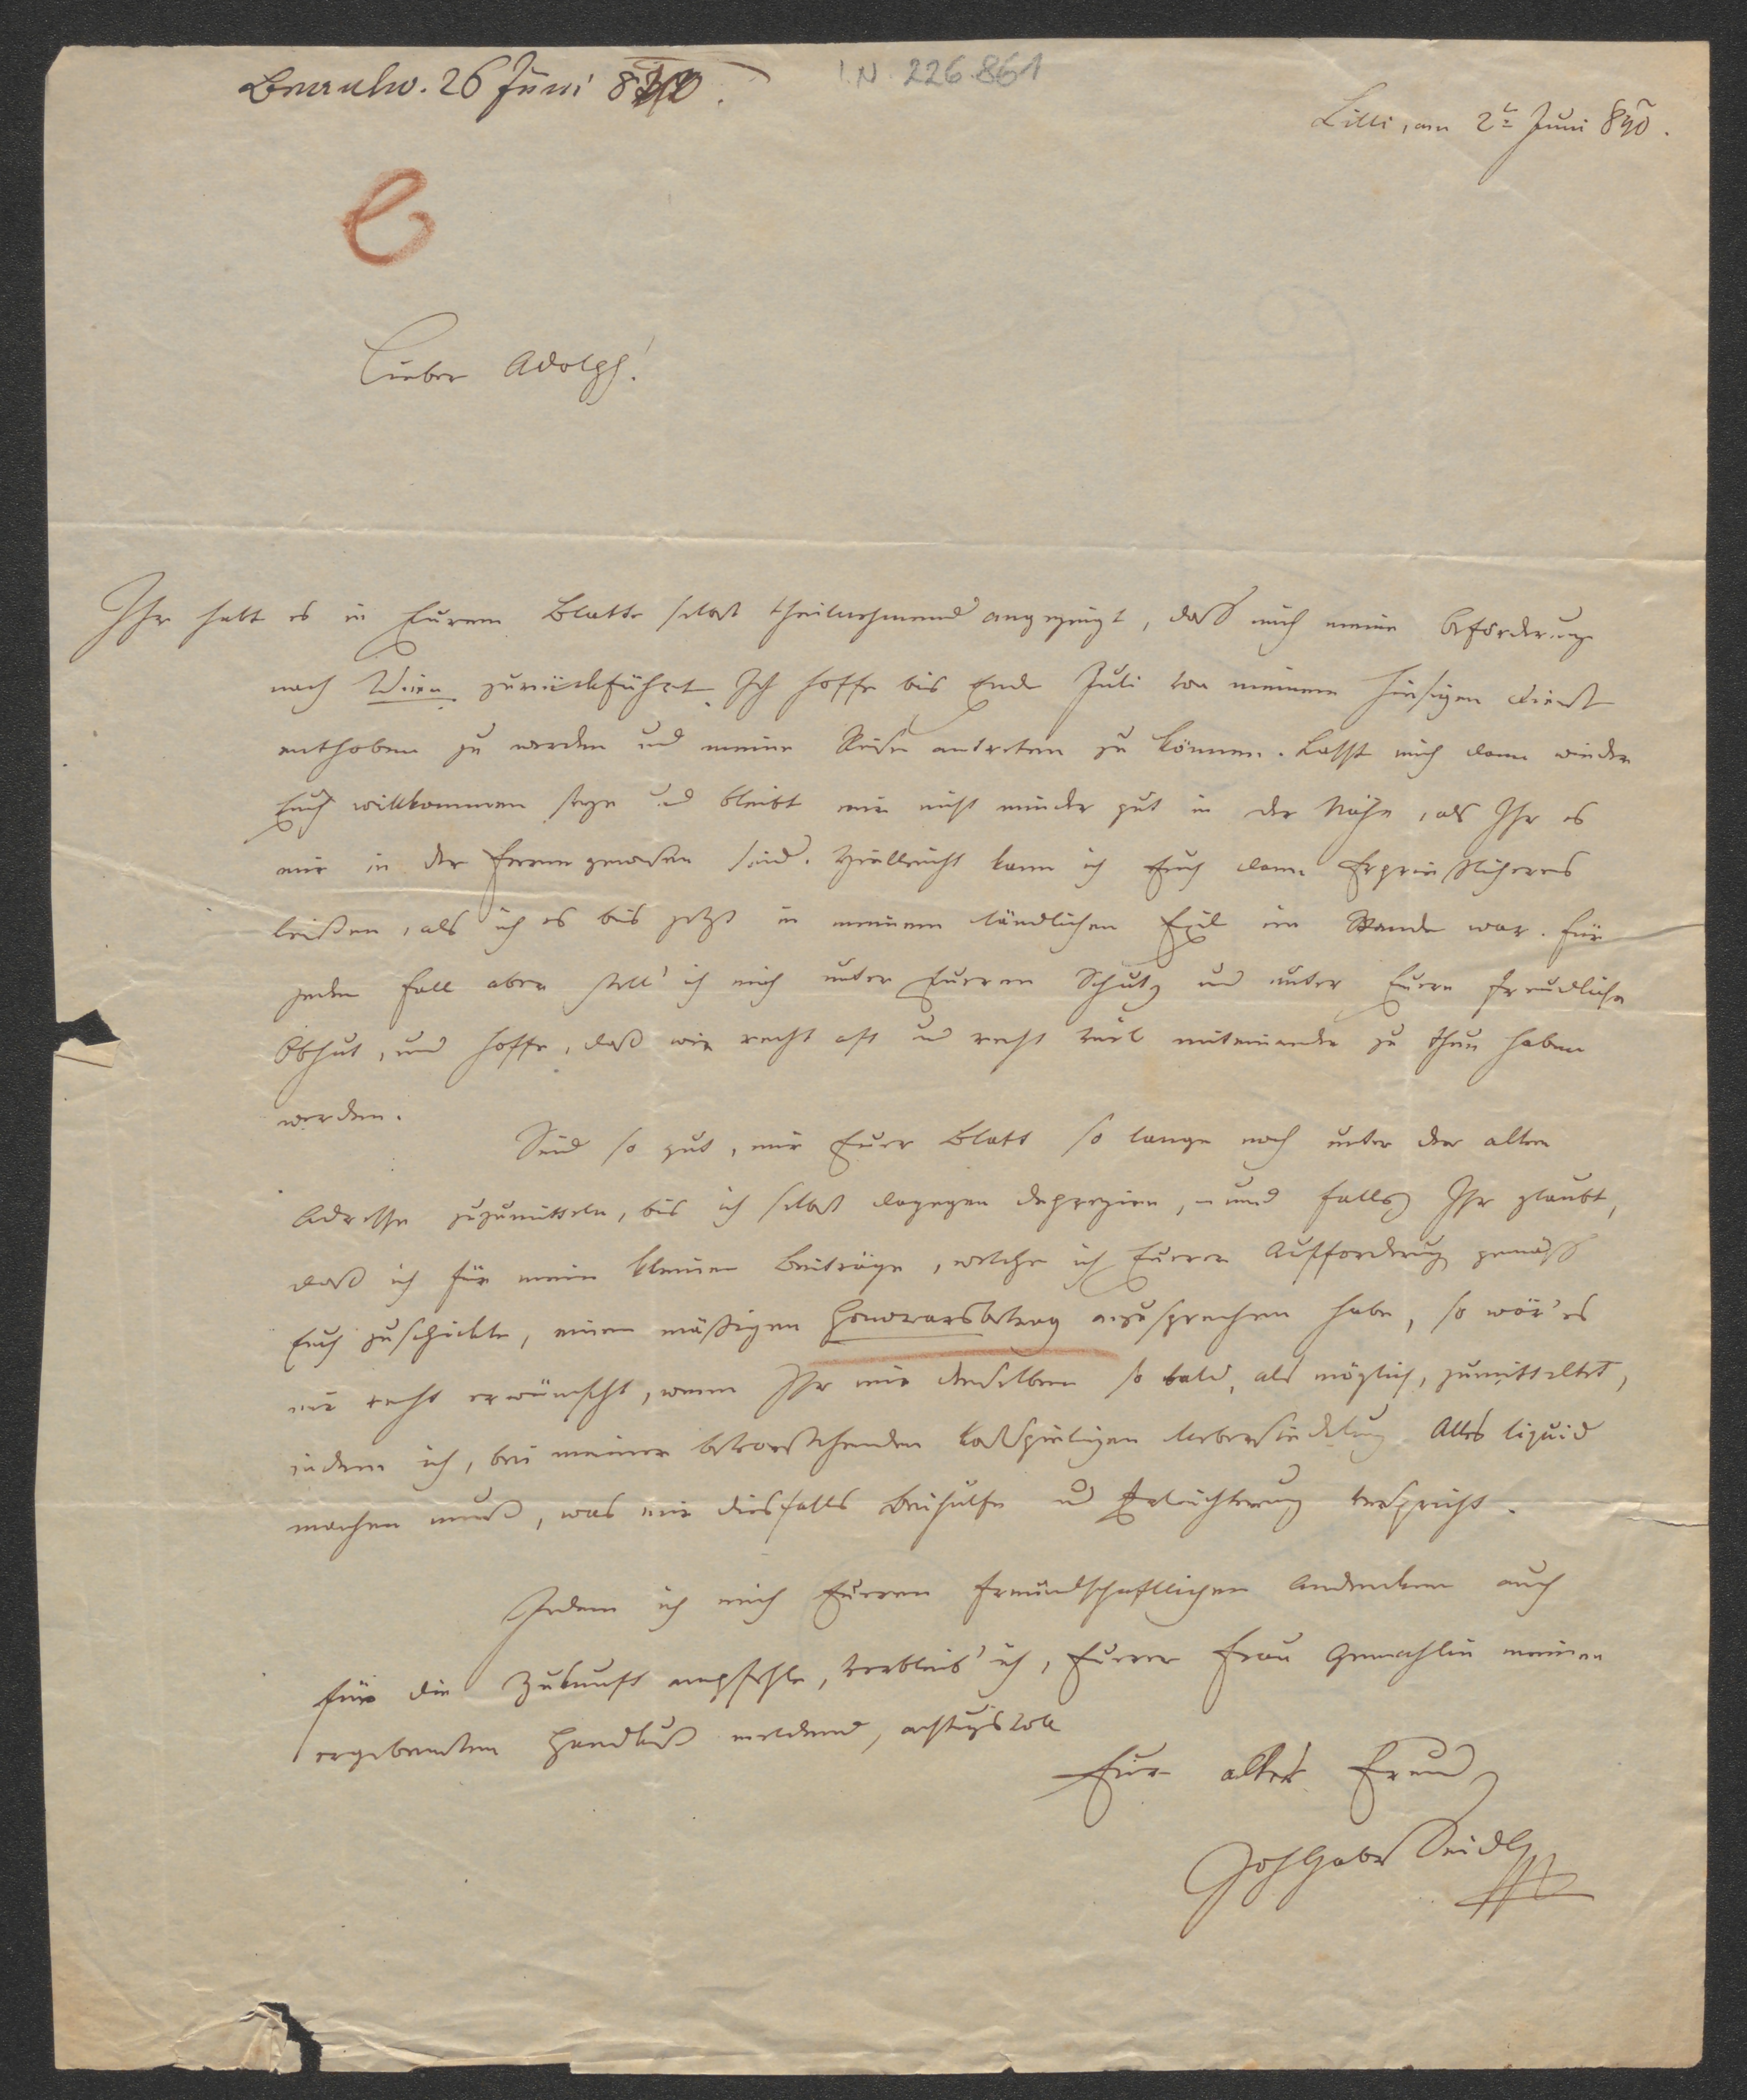 Beantw. 26 Juni 840.
I.N. 226.861
Cilli, am 2t Juni 840.
Lieber Adolph!
Ihr habt es in Eurem Blatte selbst theilnehmend angezeigt, daß mich meine Beförderung
nach Wien zurückführt. Ich hoffe bis Ende Juli von meinem hiesigen Dienst
enthoben zu werden und meine Reise antreten zu können. Lasst mich dann wieder
Euch willkommen seyn und bleibt mir nicht minder gut in der Nähe, als Ihr es
mir in der Ferne gewesen seid. Vielleicht kann ich Euch dann Ersprießlicheres
leisten, als ich es bis jetzt in meinem ländlichen Exil im Stande war. Für
jeden Fall aber stell' ich mich unter Eueren Schutz und unter Euere freundliche
Obhut, und hoffe, daß wir recht oft und recht viel miteinander zu thun haben
werden.
Seid so gut, mir Euer Blatt so lange noch unter der alten
Adresse zuzumitteln, bis ich selbst dagegen, und falls Ihr glaubt,
daß ich für meine kleinen Beiträge, welche ich Euerer Aufforderung gemäß
Euch zuschickte, einen mäßigen Honorarsbetrag anzusprechen habe, so wär' es
mir recht erwünscht, wenn Ihr mir denselben so bald, als möglich, zumitteltet,
indem ich, bei meiner bevorstehenden kostspieligen Uebersiedelung Alles liquid
machen muß, was mir diesfalls Beihülfe und Erleichterung verspricht.
Indem ich mich Eueren freundschaftlichen Andenken auch
für die Zukunft empfehle, verbleib' ich, Euerer Frau Gemahlin meinen
ergebensten Handkuß meldend, achtungsvoll
Euer alter Freund
Joh Gabr Seidl